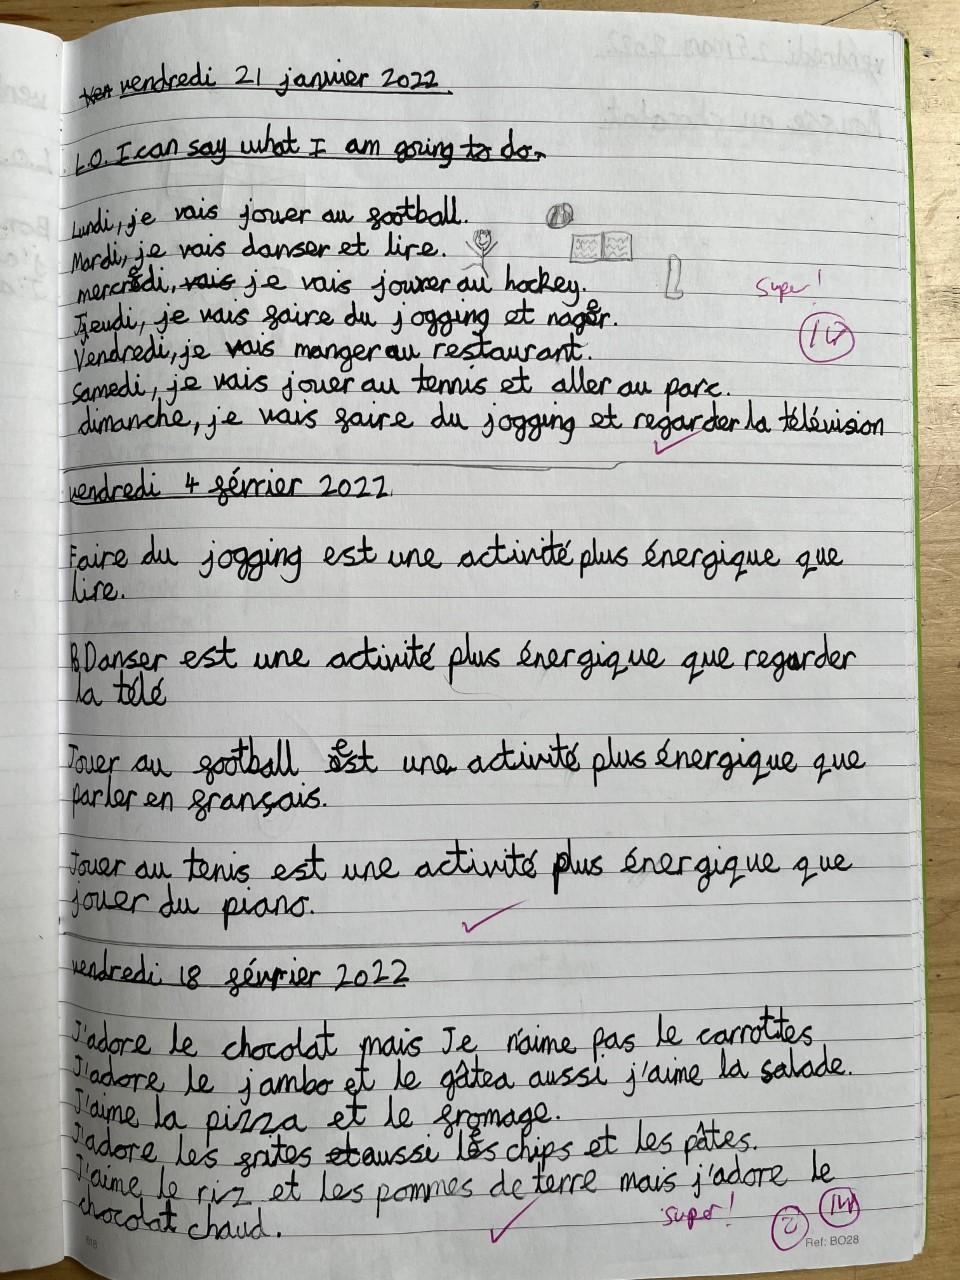 vendredi 21 janvier 2022
L.O. I can say what I am going to do.
Lundi, je vais jouer au football.
Mardi, je vais danser et lire.
mercredi, vais je vais jouer au hockey.
Super!
Jeudi, je vais faire du jogging et nager.
Vendredi, je vais manger au restaurant.
Samedi, je vais jouer au tennis et aller au parc.
dimanche, je vais faire du jogging et regarder la télévision
vendredi 4 février 2022
Faire du jogging est une activité plus énergique que
lire.
Danser est une activité plus énergique que regarder
la télé
Jouer au football est une activité plus énergique que
parler en français.
Jouer au tenis est une activité plus énergique que
jouer du piano.
vendredi 18 février 2022
J'adore le chocolat mais Je n'aime pas le carrottes
J'adore le jambo et le gâtea aussi j'aime la salade.
J'aime la pizza et le fromage.
J'adore les frites et aussi les chips et les pâtes.
J'aime le riz et les pommes de terre mais j'adore le
chocolat chaud.
super!
2
Ref: BO28